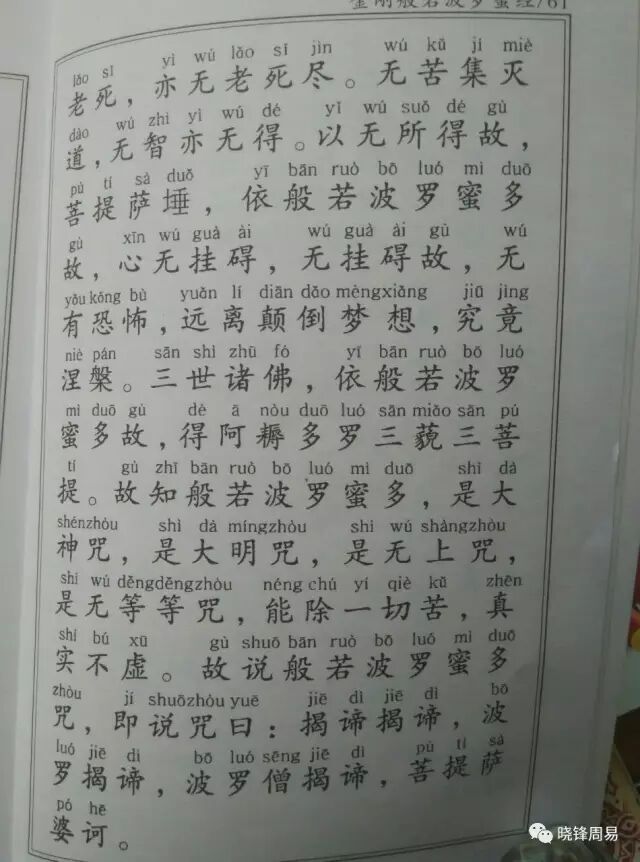 金刚般若波罗蜜经/61
lǎo sǐ yì wú lǎo sǐ jìn wú kǔ jí miè
老死，亦无老死尽。无苦集灭
dào wú zhì yì wú dé yǐ wú suǒ dé gù
道，无智亦无得。以无所得故，
pú tí sà duǒ yī bān ruò bō luó mì duō
菩提萨埵，依般若波罗蜜多
gù xīn wú guà ài wú guà ài gù wú
故，心无挂碍，无挂碍故，无
yǒu kǒng bù yuǎn lí diān dǎo mèngxiǎng jiū jìng
有恐怖，远离颠倒梦想，究竟
niè pán sān shì zhū fó yī bān ruò bō luó
涅槃。三世诸佛，依般若波罗
mì duō gù dé ā nòu duō luó sān miǎo sān pú
蜜多故，得阿耨多罗三藐三菩
tí gù zhī bān ruò bō luó mì duō shì dà
提。故知般若波罗蜜多，是大
shénzhòu shì dà míngzhòu shì wú shàngzhòu
神咒，是大明咒，是无上咒，
shì wú děngděngzhòu néng chú yí qiè kǔ zhēn
是无等等咒，能除一切苦，真
shí bù xū gù shuō bān ruò bō luó mì duō
实不虚。故说般若波罗蜜多
zhòu jí shuōzhòu yuē jiē dì jiē dì bō
咒，即说咒曰：揭谛揭谛，波
luó jiē dì bō luó sēng jiē dì pú tí sà
罗揭谛，波罗僧揭谛，菩提萨
pó hē
婆诃。
晓锋周易